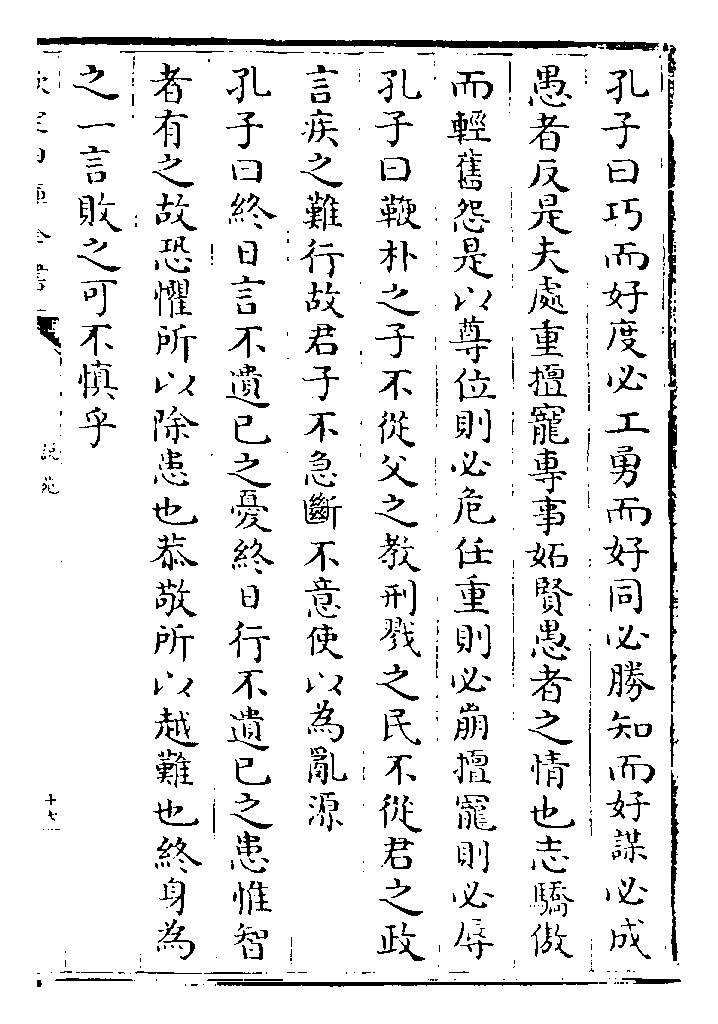 孔子曰巧而好度必工勇而好同必勝知而好謀必成
愚者反是夫處重擅寵專事妬賢愚者之情也志驕傲
而輕舊怨是以尊位則必危任重則必崩擅寵則必辱
孔子曰鞭朴之子不從父之教刑戮之民不從君之政
言疾之難行故君子不急斷不意使以為亂源
孔子曰終日言不遺已之憂終日行不遺已之患惟智
者有之故恐懼所以除患也恭敬所以越難也終身為
之一言敗之可不慎乎
說苑
十七